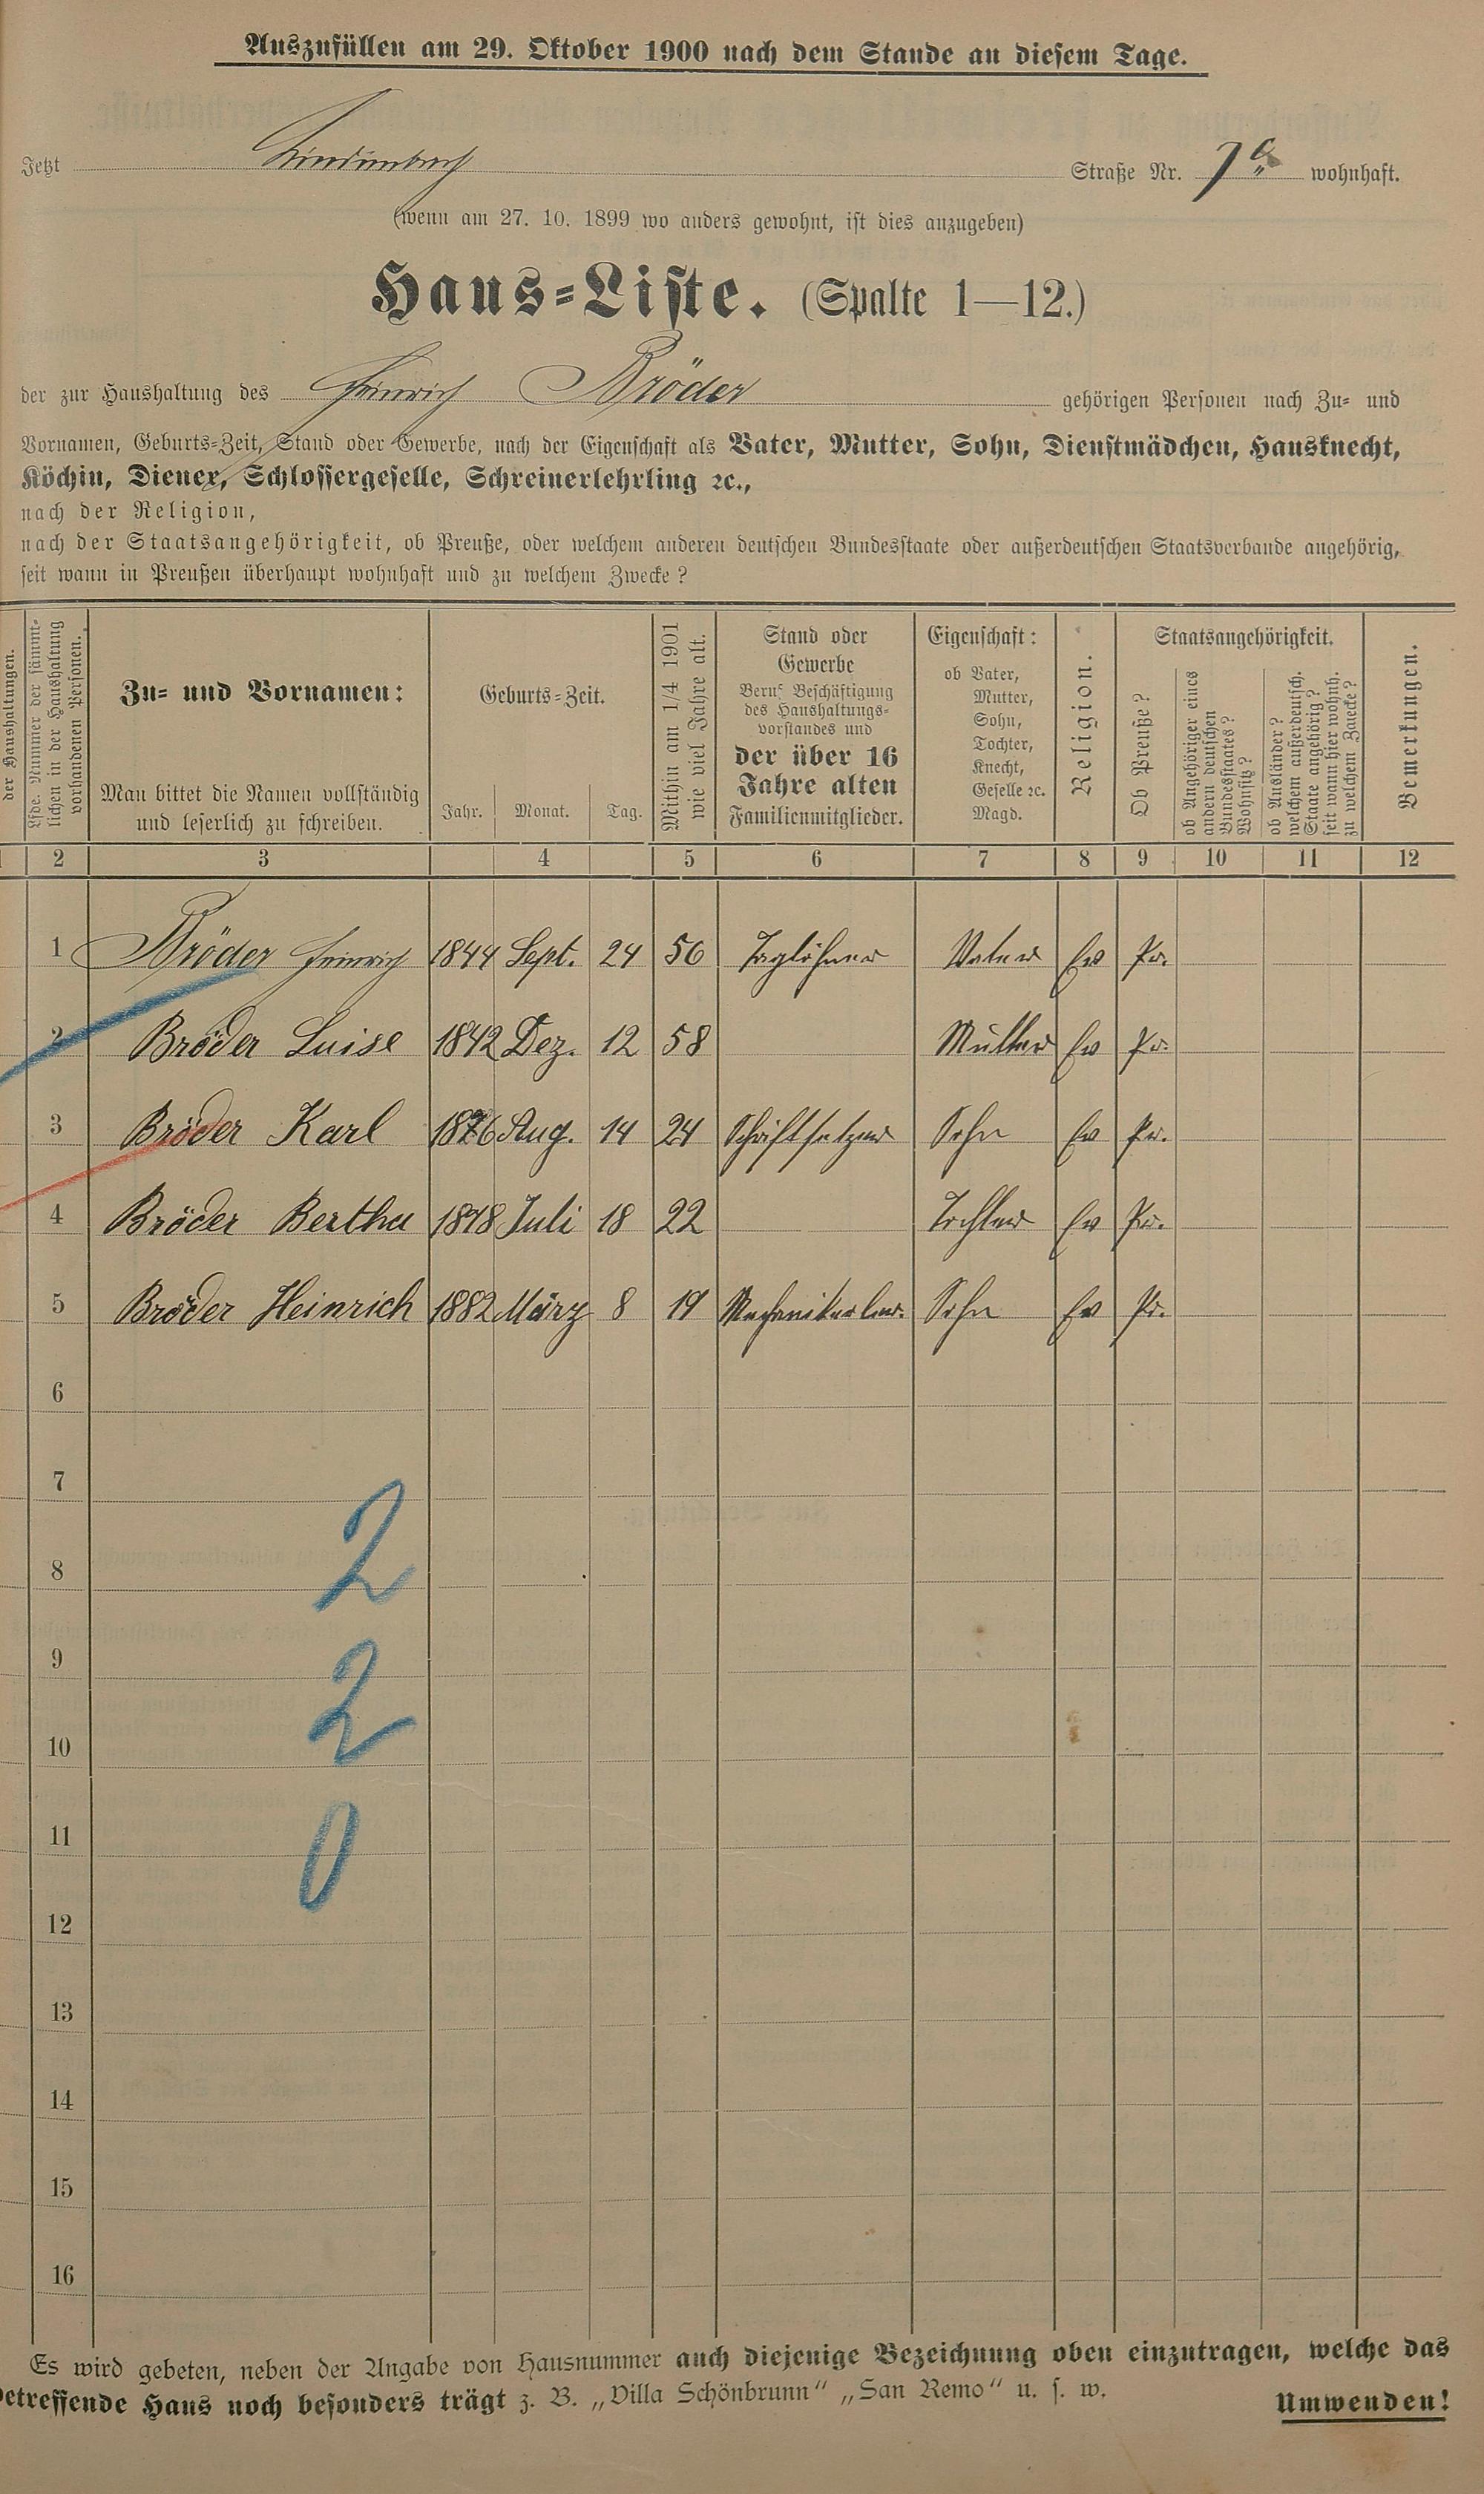 Auszufüllen am 29. Oktober 1900 nach dem Stande an diesem Tage.
Jetzt Lindenbach Straße Nr. 7a wohnhaft.
(wenn am 27. 10. 1899 wo anders gewohnt, ist dies anzugeben)
Haus=Liste. (Spalte 1—12.)
der zur Haushaltung des Heinrich Bröder gehörigen Personen nach Zu= und
Vornamen, Geburts=Zeit, Stand oder Gewerbe, nach der Eigenschaft als Vater, Mutter, Sohn, Dienstmädchen, Hausknecht,
Köchin, Diener, Schlossergeselle, Schreinerlehrling ꝛc.,
nach der Religion,
nach der Staatsangehörigkeit, ob Preuße, oder welchem anderen deutschen Bundesstaate oder außerdeutschen Staatsverbande angehörig,
seit wann in Preußen überhaupt wohnhaft und zu welchem Zwecke?
der Haushaltungen.
Lfde. Nummer der sämmt-
lichen in der Haushaltung
vorhandenen Personen.
Zu= und Vornamen:
Man bittet die Namen vollständig
und leserlich zu schreiben.
Geburts=Zeit.
Jahr. Monat. Tag.
Mithin am 1/4 1901
wie viel Jahre alt.
Stand oder
Gewerbe
Beruf Beschäftigung
des Haushaltungs-
vorstandes und
der über 16
Jahre alten
Familienmitglieder.
Eigenschaft:
ob Vater,
Mutter,
Sohn,
Tochter,
Knecht,
Geselle ꝛc.
Magd.
Religion.
Staatsangehörigkeit.
Ob Preuße?
ob Angehöriger eines
andern deutschen
Bundesstaates?
Wohnsitz?
ob Ausländer?
welchem außerdeutsch.
Staate angehörig?
seit wann hier wohnh.
zu welchem Zwecke?
Bemerkungen.
2 3 4 5 6 7 8 9 10 11 12
1 Bröder Heinrich 1844 Sept. 24 56 Taglöhner Vater Ev Pr.
2 Bröder Luise 1842 Dez. 12 58 Mutter Ev Pr.
3 Bröder Karl 1876 Aug. 14 24 Schriftsetzer Sohn Ev Pr.
4 Bröder Bertha 1878 Juli 18 22 Tochter Ev Pr.
5 Bröder Heinrich 1882 März 8 19 Sohn Ev Pr.
6
7
8 2
9
10 2
11 0
12
13
14
15
16
Es wird gebeten, neben der Angabe von Hausnummer auch diejenige Bezeichnung oben einzutragen, welche das
betreffende Haus noch besonders trägt z. B. „Villa Schönbrunn“ „San Remo“ u. s. w.
Umwenden!